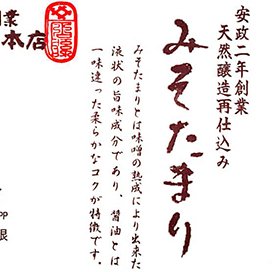 安政二年創業
天然醸造再仕込み
みそたまり
みそたまりとは味噌の熟成により出来た
液状の旨味成分であり、醤油とは
一味違った柔らかなコクが特徴です。
創業
本店
pp
根